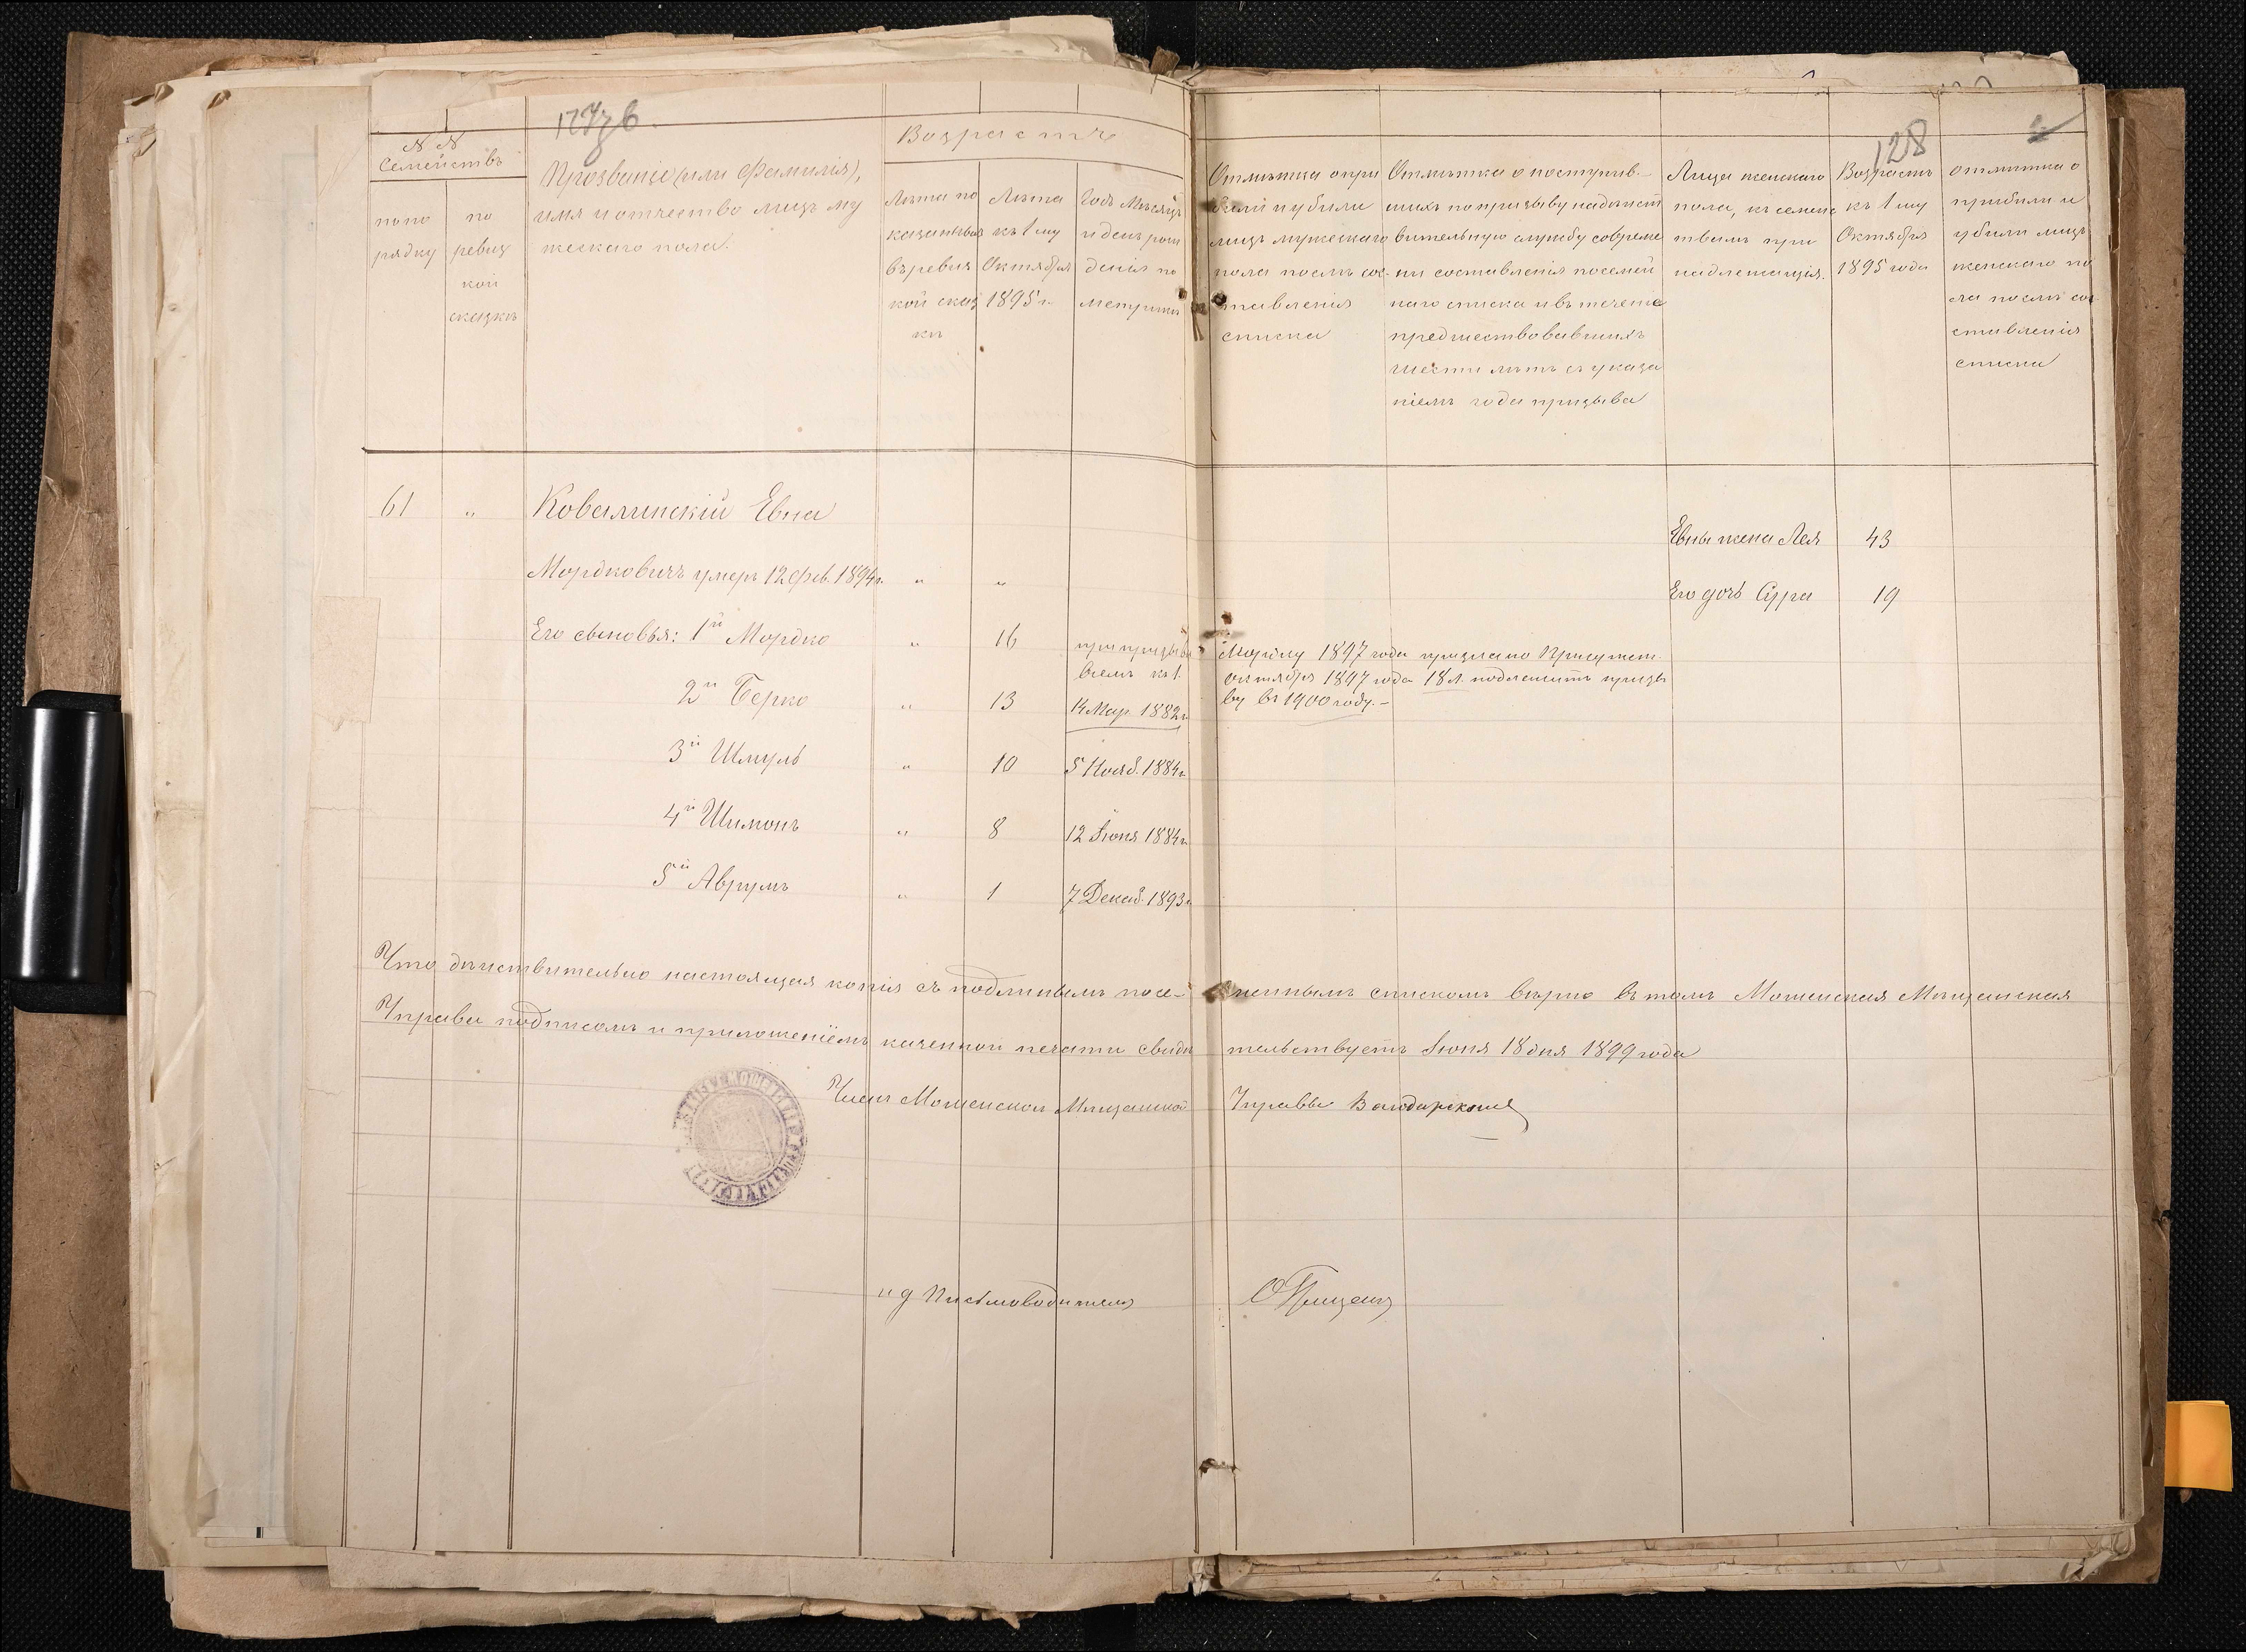 128
№ №
Семействъ
по по
рядку
по
ревиз
кой
сказкѣ
Прозваніе (или Фамилія),
имя и отчество лицъ му
жескаго пола.
Возрастъ
Лѣта по
казанныя
въ ревиз
кой сказ
кѣ
Лѣта
къ 1 му
Октября
1895 г.
Годъ Мѣсяцъ
и день рож
денія по
метрикѣ
Отмѣтка о при
были и убыли
лицъ мужескаго
пола послѣ сос-
тавленія
списка
Отмѣтка о поступив-
шихъ по призыву на дѣйст
вительную службу со време
ни составленія посемей
наго списка и въ теченіе
предшествовавшихъ
шести лѣтъ съ указа
ніемъ года призыва
Лица женскаго
пола, къ семейс
твамъ при
надлежащія.
Возрастъ
къ 1 му
Октября
1895 года
Отмѣтка о
прибыли и
убыли лицъ
женскаго по
ла послѣ сос
тавленія
списка
61 " Ковалинскій Евна
Евны жена Лея 43
Мордковичъ умеръ 12 фев. 1894 г. " "
Его дочь Сурра 19
Его сыновья: 1й Мордко " 16
при призывѣ Мордку 1897 года признано Присутст.
віемъ къ 1 октября 1897 года 18 л. подлежитъ призы
ву въ 1900 году. -
2й Берко " 13 14 Мар. 1882 г.
3й Шмуль " 10 5 Нояб. 1884 г.
4й Шимонъ " 8 12 Іюня 1884 г.
5й Аврумъ " 1 7 Декаб. 1893 г.
Что дѣйствительно настоящая копія съ подлиннымъ посе-мейнымъ спискомъ вѣрно въ томъ Мошенская Мѣщанская
Управа подписомъ и приложеніемъ казенной печати свидѣтельствуетъ Іюня 18 дня 1899 года
Членъ Мошенской Мѣщанской Управы
и д Письмоводителя